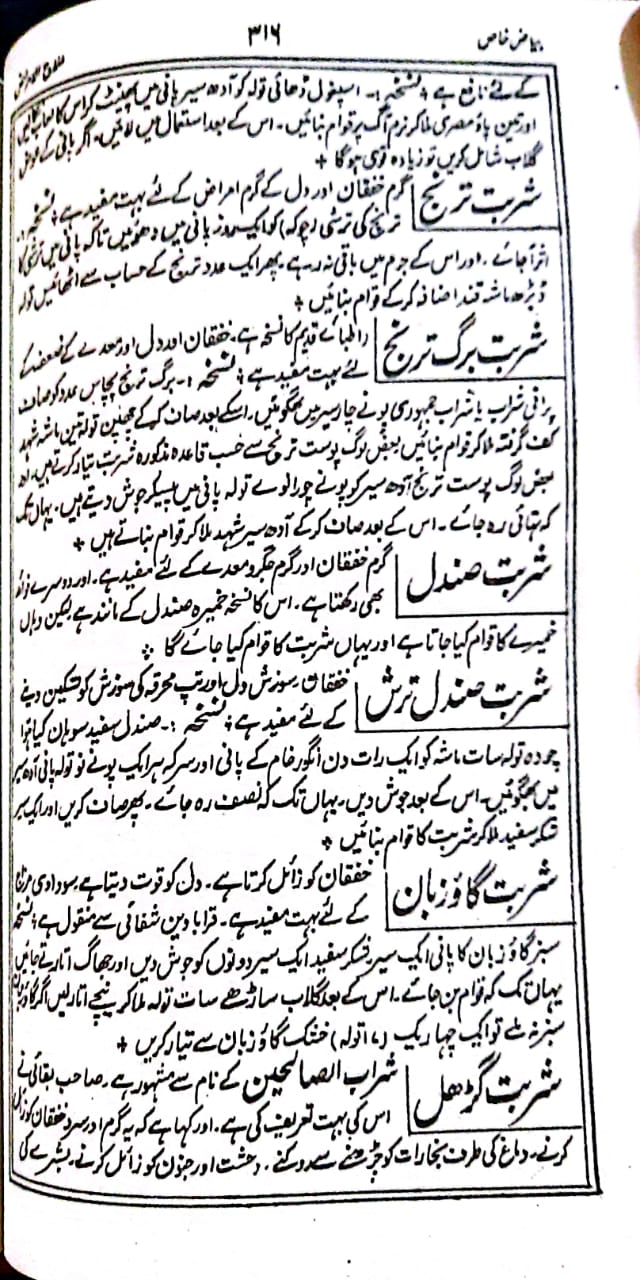 بیاض خاص
۳۱۶
کے لئے نافع ہے ؛ نسخہ :۔ اسپغول ڈھائی تولہ کو آدھ سیر پانی میں پھینٹ کر اس کا لعاب نکالیں
اور تین پاؤ مصری ملا کر نرم آگ پر قوام بنائیں۔ اس کے بعد استعمال میں لائیں۔ اگر پانی کے عوض
گلاب شامل کریں تو زیادہ قوی ہو گا ÷
شربت ترنج
گرم خفقان اور دل کے گرم امراض کے لئے بہت مفید ہے ؛ نسخہ :۔
ترنج کی ترشی (چوکہ) کو ایک روز پانی میں دھوئیں تاکہ پانی میں ترشی کا
اثر آ جائے۔ اور اس کے جرم میں باقی نہ رہے۔ پھر ایک عدد ترنج کے حساب سے اٹھائیں تولہ
ڈیڑھ ماشہ قند اضافہ کر کے قوام بنائیں ÷
شربت برگ ترنج
اطبائے قدیم کا نسخہ ہے۔ خفقان اور دل اور معدے کے ضعف کے
لئے بہت مفید ہے ؛ نسخہ :۔ برگ ترنج پچاس عدد کو صاف
پرانی شراب یا شراب جمہوری پونے چار سیر میں بھگوئیں۔ اسکے بعد صاف کر کے تولہ تین ماشہ شہد
کف گرفتہ ملا کر قوام بنائیں۔ بعض لوگ پوست ترنج سے حسب قاعدہ مذکورہ شربت تیار کرتے ہیں۔ اور
بعض لوگ پوست ترنج آدھ سیر کو پونے چورانوے تولہ پانی میں پیسکر جوش دیتے ہیں۔ یہاں تک
کہ تہائی رہ جائے۔ اس کے بعد صاف کر کے آدھ سیر شہد ملا کر قوام بناتے ہیں ÷
شربت صندل
گرم خفقان اور گرم جگر و معدے کے لئے مفید ہے۔ اور دوسرے فوائد
بھی رکھتا ہے۔ اس کا نسخہ خمیرہ صندل کے مانند ہے لیکن وہاں
خمیرے کا قوام کیا جاتا ہے اور یہاں شربت کا قوام کیا جائے گا ÷
شربت صندل ترش
خفقان، سوزش دل اور تپ محرقہ کی سوزش کو تسکین دینے
کے لئے مفید ہے ؛ نسخہ :۔ صندل سفید سوہان کیا ہوا
چودہ تولہ سات ماشہ کو ایک رات دن انگور خام کے پانی اور سرکہ ہر ایک پونے نو تولہ پانی آدھ سیر
میں بھگوئیں۔ اس کے بعد جوش دیں۔ یہاں تک کہ نصف رہ جائے۔ پھر صاف کریں اور ایک سیر
شکر سفید ملا کر شربت کا قوام بنائیں ÷
شربت گاؤ زبان
خفقان کو زائل کرتا ہے۔ دل کو قوت دیتا ہے سوداوی مزاج
کے لئے بہت مفید ہے۔ قرابادین شفائی سے منقول ہے ؛ نسخہ
سبز گاؤ زبان کا پانی ایک سیر۔ شکر سفید ایک سیر دونوں کو جوش دیں اور جھاگ اتارتے جائیں
یہاں تک کہ قوام بن جائے۔ اس کے بعد گلاب ساڑھے سات تولہ ملا کر نیچے اتار لیں اگر گاؤ زبان
سبز نہ ملے تو ایک چہاریک (۱۷ تولہ) خشک گاؤ زبان سے تیار کریں ÷
شربت گڑھل
شراب الصالحین کے نام سے مشہور ہے۔ صاحب بقائی نے
اس کی بہت تعریف کی ہے۔ اور کہا ہے کہ یہ گرم اور سرد خفقان کو زائل
کرنے۔ دماغ کی طرف بخارات کو چڑھنے سے روکنے۔ وحشت اور جنون کو زائل کرنے۔ بشرے کی